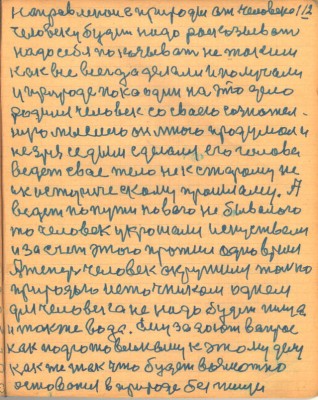 направленою в природы от человека 112
человеку будит надо рассказывать
надо себя показывать не таким
как вне всегда делали и получали
у природе пока один на это дело
родим человек со своего сознател-
ную мыслею он много продумал и
не зря седым сделали его голова
ведет свае тело не к старому не
к историческому прошламу. А
ведет по пути нового не бывалого
то человек украшали искуством
и за счет этого прожил одно время
А теперь человек окружили только
природою источником одием
для человека не надо будит пища
и также вода. Ему задают вапрос
как подготовленому к этому делу
как же так что будет возможно
оставатся в природе без пищи